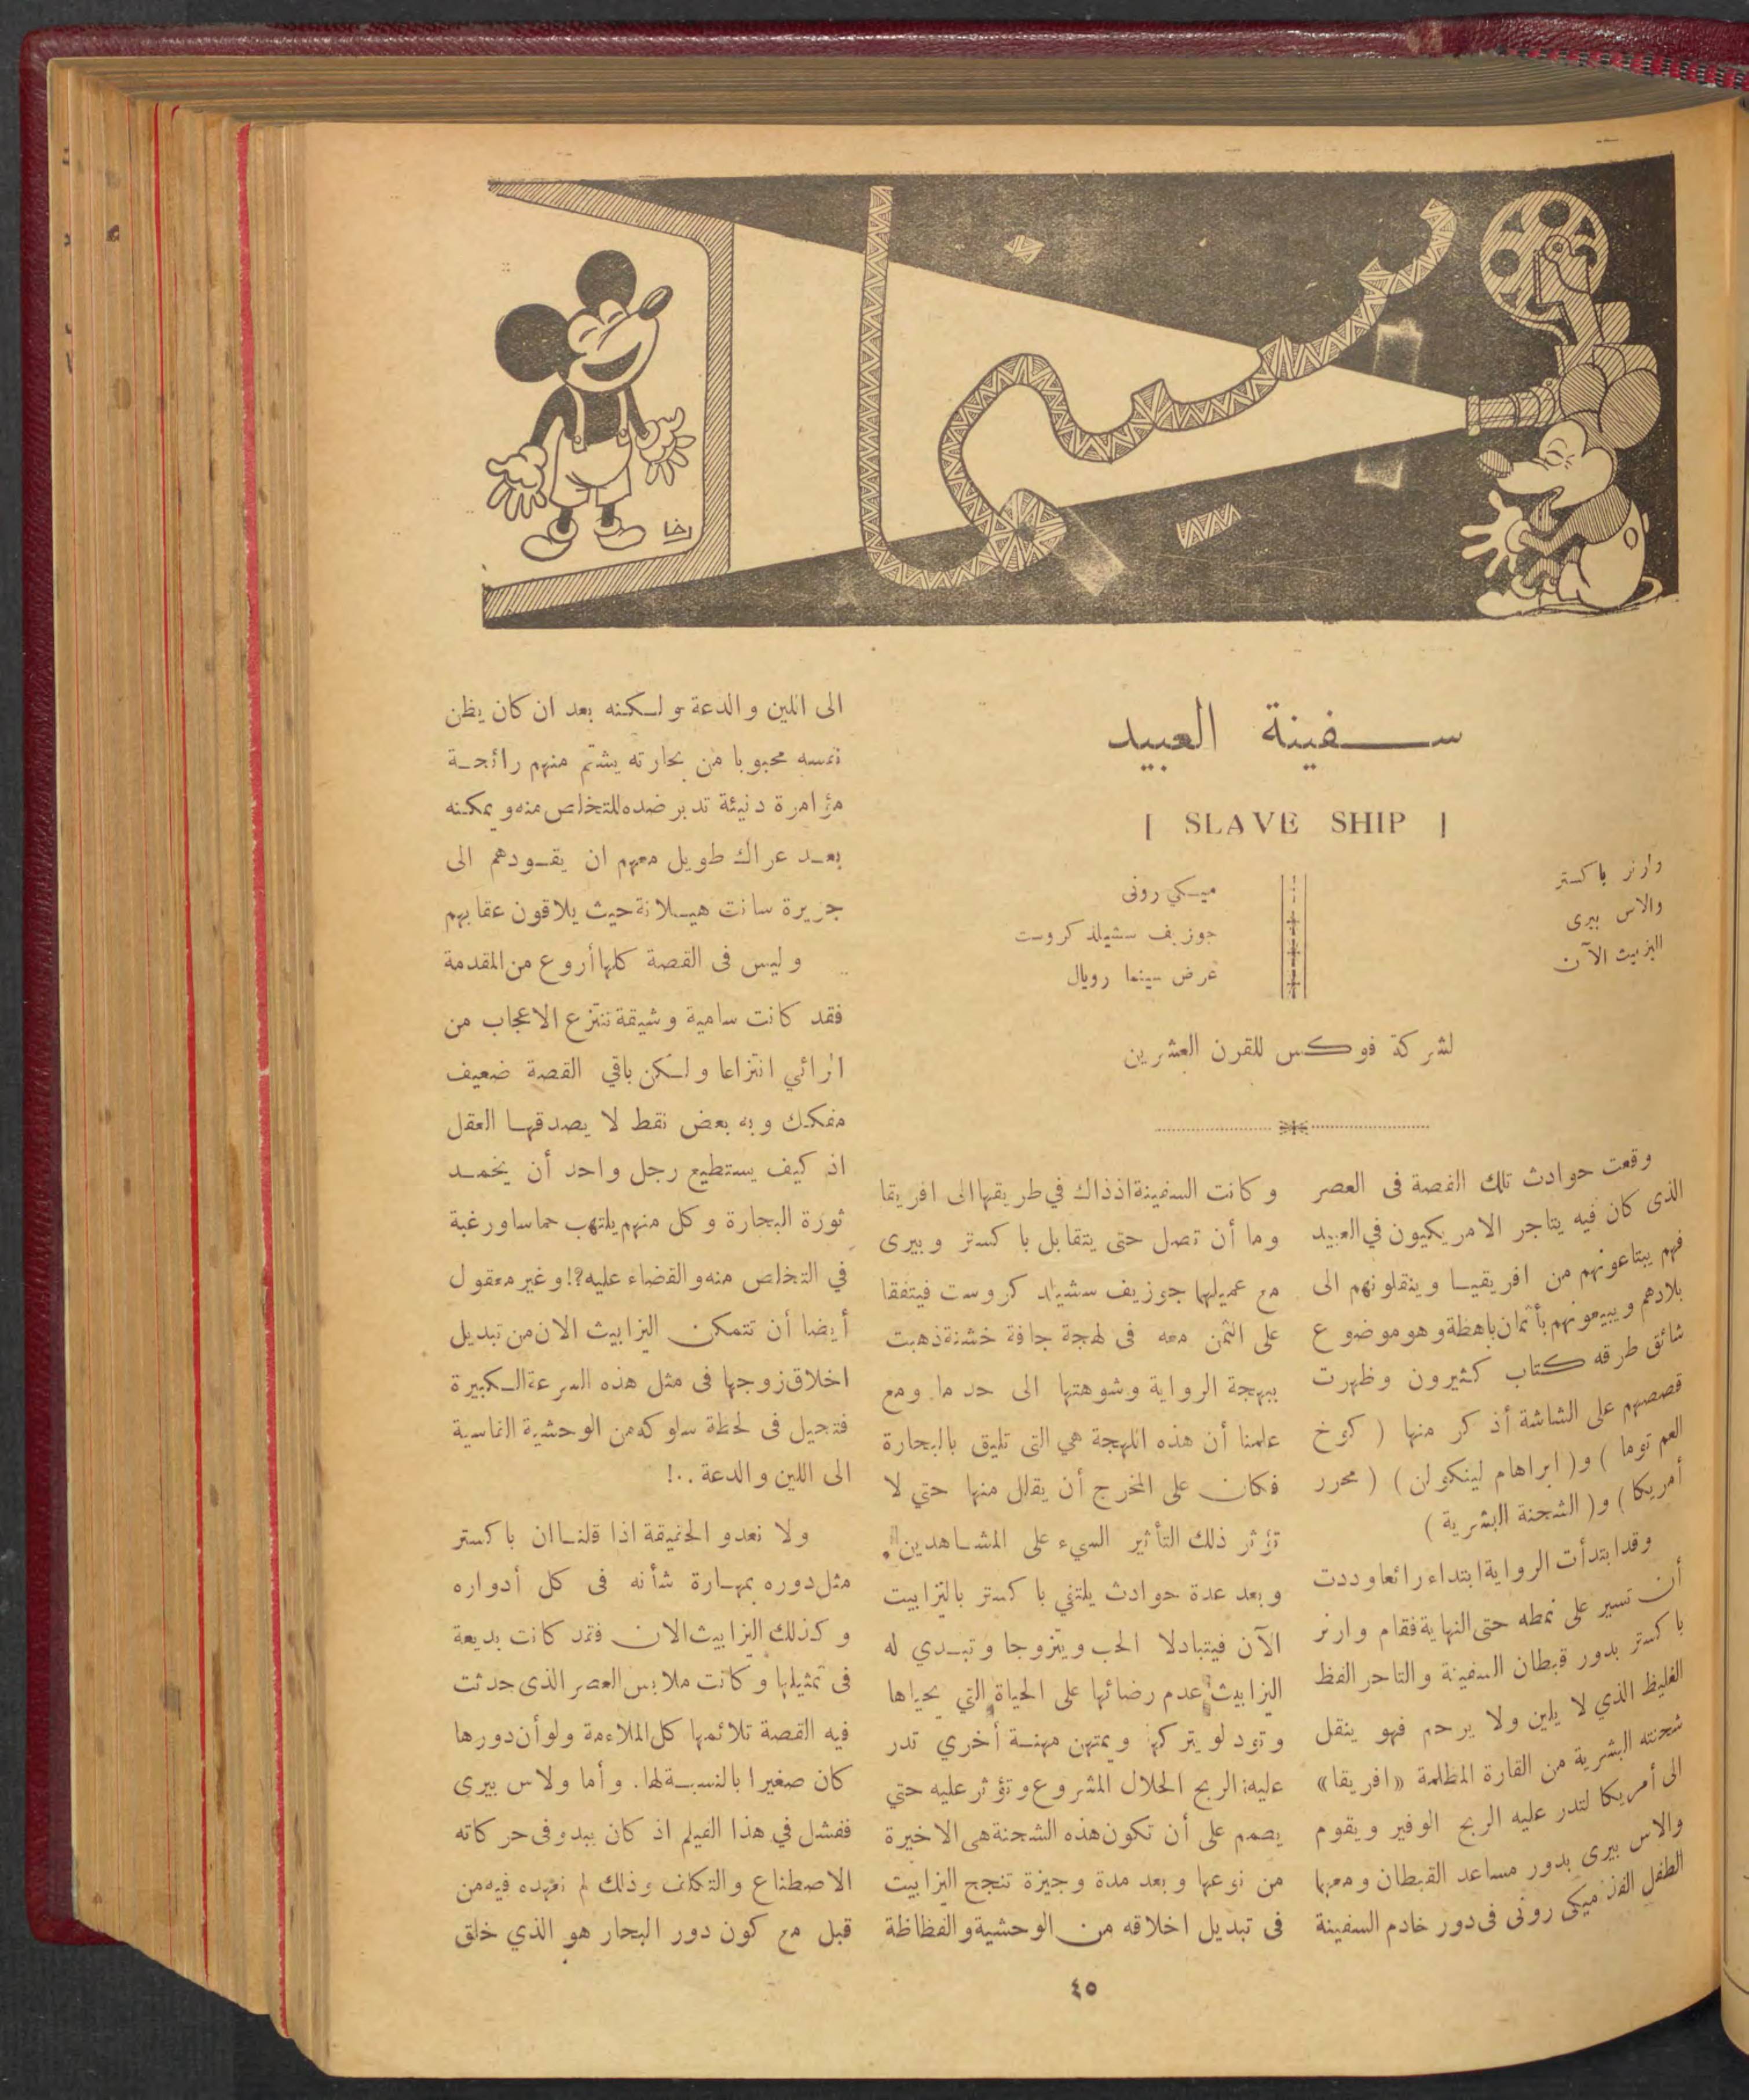 سينما
رخا
سفينة العبيد
[ SLAVE SHIP ]
وارنر باكستر
والاس بيرى
اليزبيث الآن
ميكي رونى
جوزيف سشيلد كروست
عرض سينما رويال
لشركة فوكس للقرن العشرين
وقعت حوادث تلك القصة فى العصر
الذى كان فيه يتاجر الامريكيون في العبيد
فهم يبتاعونهم من افريقيا وينقلونهم الى
بلادهم ويبيعونهم بأثمان باهظة وهو موضوع
شائق طرقه كتاب كثيرون وظهرت
قصصهم على الشاشة أذكر منها ( كوخ
العم توما ) و( ابراهام لينكولن ) ( محرر
أمريكا ) و( الشحنة البشرية )
وقد ابتدأت الرواية ابتداء رائعا وددت
أن تسير على نمطه حتى النهاية فقام وارنر
باكستر بدور قبطان السفينة والتاجر الفظ
الغليظ الذي لا يلين ولا يرحم فهو ينقل
شحنته البشرية من القارة المظلمة «افريقا»
الى أمريكا لتدر عليه الربح الوفير ويقوم
والاس بيرى بدور مساعد القبطان ومعهما
الطفل الفذ ميكى رونى فى دور خادم السفينة
وكانت السفينة اذذاك في طريقها الى افريقا
وما أن تصل حتى يتقابل باكستر وبيرى
مع عميلهما جوزيف سشيلد كروست فيتفقا
على الثمن معه فى لهجة جافة خشنة ذهبت
ببهجة الرواية وشوهتها الى حد ما. ومع
علمنا أن هذه اللهجة هي التى تليق بالبحارة
فكان على المخرج أن يقلل منها حتي لا
تؤثر ذلك التأثير السيء على المشاهدين.
وبعد عدة حوادث يلتقي باكستر باليزابيت
الآن فيتبادلا الحب ويتزوجا وتبدي له
اليزابيث عدم رضائها على الحياة التي يحياها
وتود لو يتركها ويمتهن مهنة أخري تدر
عليه الربح الحلال المشروع وتؤثر عليه حتي
يصمم على أن تكون هذه الشحنة هى الاخيرة
من نوعها وبعد مدة وجيزة تنجح اليزابيت
فى تبديل اخلاقه من الوحشية والفظاظة
الى اللين والدعة ولكنه بعد ان كان يظن
نفسه محبوبا من بحارته يشتم منهم رائحة
مؤامرة دنيئة تدبر ضده للتخلص منه ويمكنه
بعد عراك طويل معهم ان يقودهم الى
جزيرة سانت هيلانة حيث يلاقون عقابهم
وليس فى القصة كلها أروع من المقدمة
فقد كانت سامية وشيقة تنتزع الاعجاب من
الرائي انتزاعا ولكن باقي القصة ضعيف
مفكك وبه بعض نقط لا يصدقها العقل
اذ كيف يستطيع رجل واحد أن يخمد
ثورة البحارة وكل منهم يلتهب حماسا ورغبة
في التخلص منه والقضاء عليه؟! وغير معقول
أيضا أن تتمكن اليزابيث الان من تبديل
اخلاق زوجها فى مثل هذه السرعة الكبيرة
فتحيل فى لحظة سلوكه من الوحشية القاسية
الى اللين والدعة ..!
ولا نعدو الحقيقة اذا قلنا ان باكستر
مثل دوره بمهارة شأنه فى كل أدواره
وكذلك اليزابيث الان فقد كانت بديعة
فى تمثيلها وكانت ملابس العصر الذى حدثت
فيه القصة تلائمها كل الملاءمة ولو أن دورها
كان صغيرا بالنسبة لها. وأما ولاس بيرى
ففشل في هذا الفيلم اذ كان يبدو فى حركاته
الاصطناع والتكلف وذلك لم نعهده فيه من
قبل مع كون دور البحار هو الذي خلق
٤٥